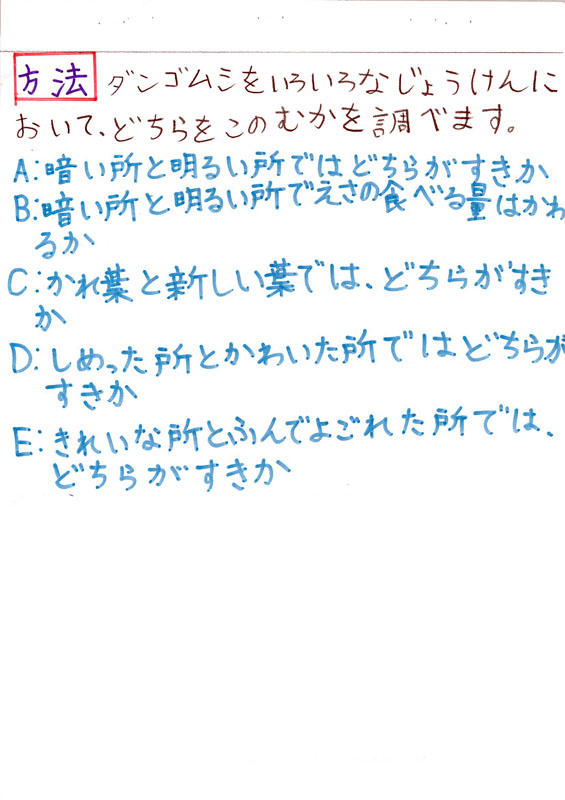 方法 ダンゴムシをいろいろなじょうけんに
おいて、どちらをこのむかを調べます。
A:暗い所と明るい所ではどちらがすきか
B:暗い所と明るい所でえさの食べる量はかわ
るか
C:かれ葉と新しい葉では、どちらがすき
か
D:しめった所とかわいた所ではどちらが
すきか
E:きれいな所とふんでよごれた所では、
どちらがすきか